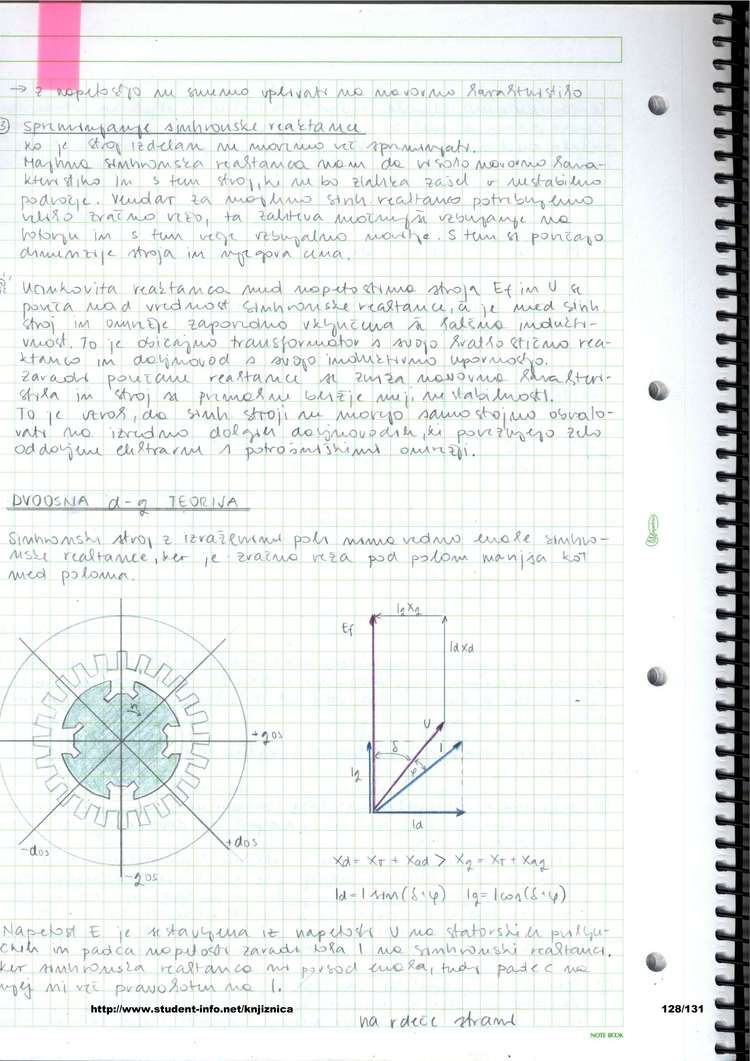 → z napetostjo ne smemo vplivati na navorno karakteristiko
3) Spreminjanje sinhronske reaktance
Ko je stroj izdelan ne moremo več spreminjati.
Majhna sinhronska reaktanca nam da visoko navorno kara-
kteristiko in s tem stroj, ki ne bo zlahka zašel v nestabilno
področje. Vendar za majhno sinh reaktanco potrebujemo
veliko zračno režo, ta zahteva močnejše vzbujanje na
rotorju in s tem večje vzbujalno navitje. S tem se povečajo
dimenzije stroja in njegova cena.
Učinkovita reaktanca med napetostima stroja Ef in U se
poveča nad vrednost sinhronske reaktance, če je med sinh
stroj in omrežje zaporedno vključena še kakšna indukti-
vnost. To je običajno transformator s svojo kratkostično rea-
ktanco in daljnovod s svojo induktivno upornostjo.
Zaradi povečane reaktance se zniža navorna karakteri-
stika in stroj se primakne bližje meji nestabilnosti.
To je vzrok, da sinh stroji ne morejo samostojno obrato-
vati na izredno dolgih daljnovodih, ki povezujejo zelo
oddaljene elektrarne s potrošniškimi omrežji.
DVOOSNA d-q TEORIJA
Sinhronski stroj z izraženimi poli nima vedno enake sinhro-
nske reaktance, ker je zračna reža pod polom manjša kot
med poloma.
IqXq
Ef
IdXd
U
δ
I
φ
Iq
Id
+qos
-dos
+dos
-qos
Xd = Xσ + Xad > Xq = Xσ + Xaq
Id = I sin(δ+φ) Iq = I cos(δ+φ)
Napetost E je sestavljena iz napetosti U na statorskih priklju-
čkih in padca napetosti zaradi toka I na sinhronski reaktanci.
Ker sinhronska reaktanca ni povsod enaka, tudi padec na
njej ni več pravokoten na I.
http://www.student-info.net/knjiznica
128/131
na rdeče strani
NOTE BOOK